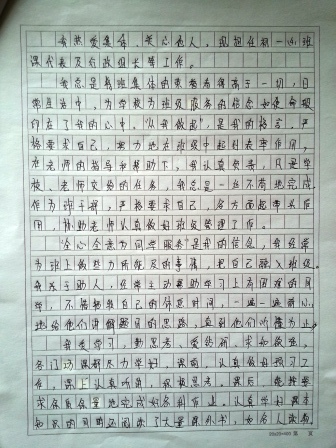 我热爱集体、关心他人，现担任初一(4)班
课代表及行政组长等工作。
我总是将班集体的荣誉看得高于一切，日
常生活中，为学校为班级服务的信念如使命般
印在了我的心中。"从我做起"，是我的格言，严
格要求自己，努力地在班级中起到表率作用，
在老师的指导和帮助下，我认真负责，凡是学
校、老师交给的任务，我总是一丝不苟地完成。
作为班干部，严格要求自己，各方面起带头作
用，协助老师认真做好班级管理工作。
"全心全意为同学服务"是我的信念，我经常
为班上做些力所能及的事情，把自己融入班级。
我乐于助人，经常主动帮助学习上有困难的同
学，不惜牺牲自己的休息时间，一遍一遍耐心
地给他们讲解题目的思路，直到他们听懂为止。
我爱学习，勤思考、爱钻研、求知欲强，
各门功课都尽力学好，课前，认真做好预习工
作，课上认真听讲，积极思考，课后，能按要
求保质保量地完成好各科作业，认真学好课本
知识的同时还阅读了大量课外书，如名人读物